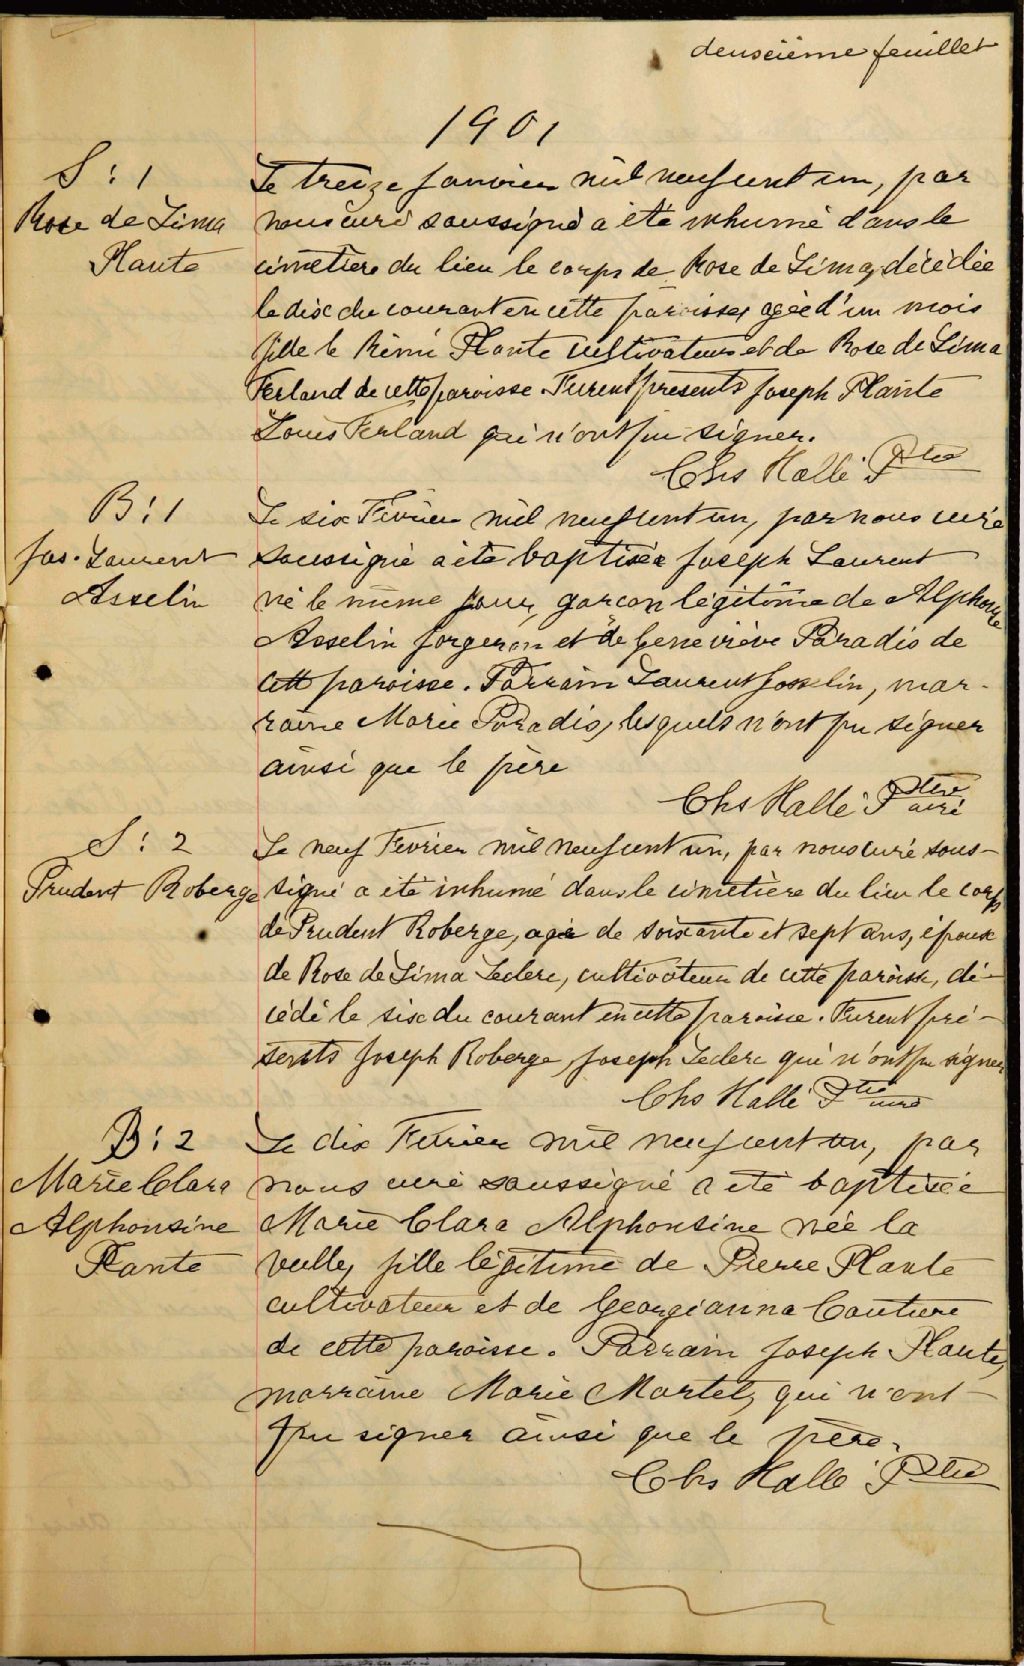 deuxième feuillet
1901
S : 1
Rose de Lima
Plante
Le treize Janvier mil neuf cent un, par
nous curé soussigné a été inhumé dans le
cimetière du lieu le corps de Rose de Lima, décédée
le dix du courant en cette paroisse, agée d'un mois
fille de Rémi Plante cultivateur et de Rose de Lima
Ferland de cette paroisse. Furent présents Joseph Plante
Louis Ferland qui n'ont pu signer.
Chs Hallé Ptre
B : 1
Jos. Laurent
Asselin
Le six Février mil neuf cent un, par nous curé
soussigné a été baptisée Joseph Laurent
né le même jour, garcon légitime de Alphonse
Asselin forgeron et de Geneviève Paradis de
cette paroisse. Parrain Laurent Josselin, mar-
raine Marie Paradis, lesquels n'ont pu signer
ainsi que le père
Chs Hallé Ptre curé
S : 2
Prudent Roberge
Le neuf Fevrier mil neuf cent un, par nous curé sous-
signé a été inhumé dans le cimetière du lieu le corps
de Prudent Roberge, agé de soixante et sept ans, époux
de Rose de Lima Leclerc, cultivateur de cette paroisse, dé-
cédé le six du courant en cette paroisse. Furent pré-
sents Joseph Roberge, Joseph Leclerc qui n'ont pu signer
Chs Hallé Ptre curé
B : 2
Marie Clara
Alphonsine
Plante
Le dix Février mil neuf cent un, par
nous curé soussigné a été baptisée
Marie Clara Alphonsine née la
veille, fille légitime de Pierre Plante
cultivateur et de Georgianna Couture
de cette paroisse. Parrain Joseph Plante,
marraine Marie Martel, qui n'ont
pu signer ainsi que le père.
Chs Hallé Ptre